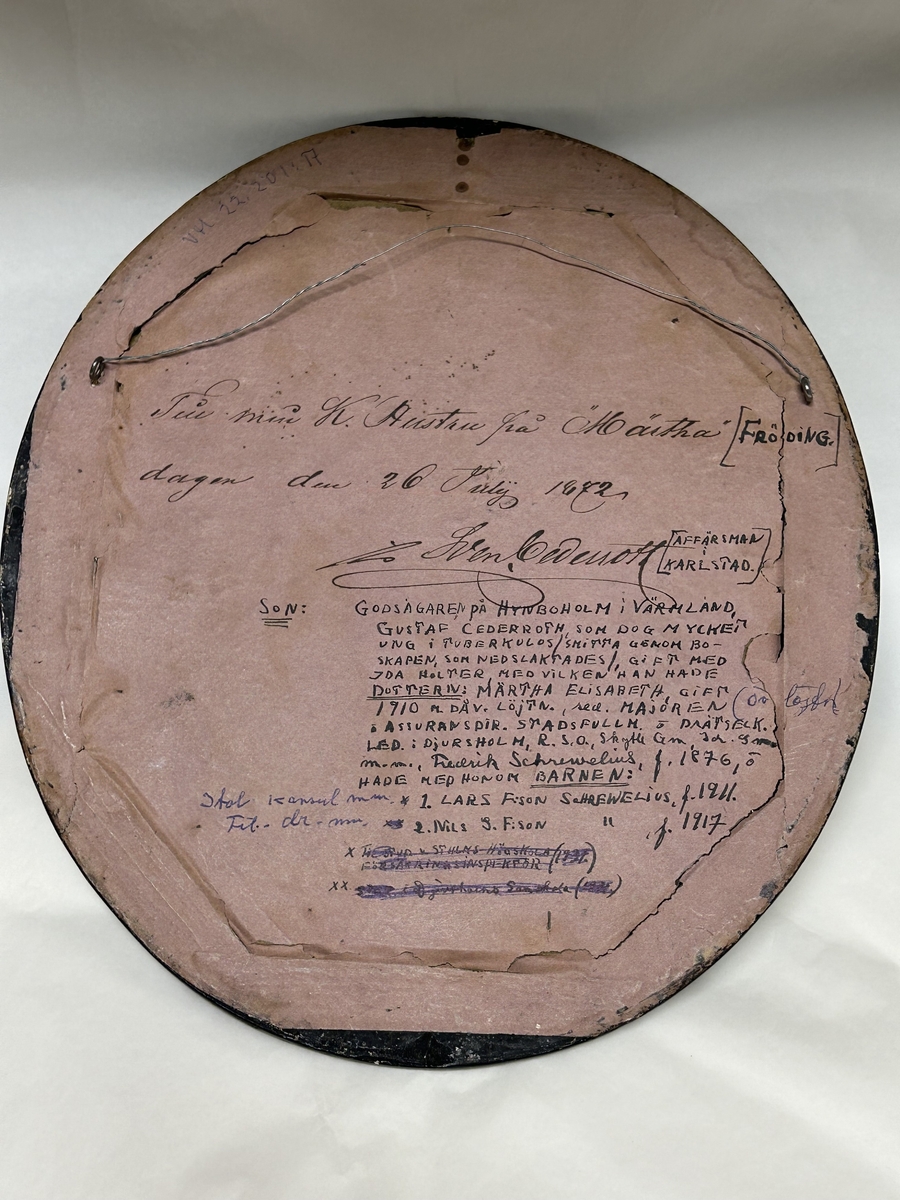 VH. 22. 201:17
Till min K. Hustru på "Märtha" [FRÖDING.]
dagen den 26 July 1872
Sven Cederroth [AFFÄRSMAN
i
KARLSTAD.]
SON: GODSÄGAREN PÅ HYNBOHOLM i VÄRMLAND,
GUSTAF CEDERROTH, SOM DOG MYCKET
UNG i TUBERKULOS/SMITTA GENOM BO-
SKAPEN, SOM NEDSLAKTADES/, GIFT MED
IDA HOLTER, MED VILKEN HAN HADE
DOTTERN: MÄRTHA ELISABETH, GIFT
1910 M. DÅV. LÖJTN., sed. MAJOREN
ASSURANSDIR. STADSFULLM. o DRÄTSELK.
LED. i DJURSHOLM, R.S.O.,
m.m., Fredrik Schrewelius, f. 1876, o
HADE MED HONOM BARNEN:
konsul mm x 1. LARS F:SON SCHREWELIUS, f. 1911.
Fil. dr. mm. xx 2. NILS G. F:SON " , f. 1917
X STHLMS HÖGSKOLA
FÖRSÄKRINGSINSPEKTÖR
XX